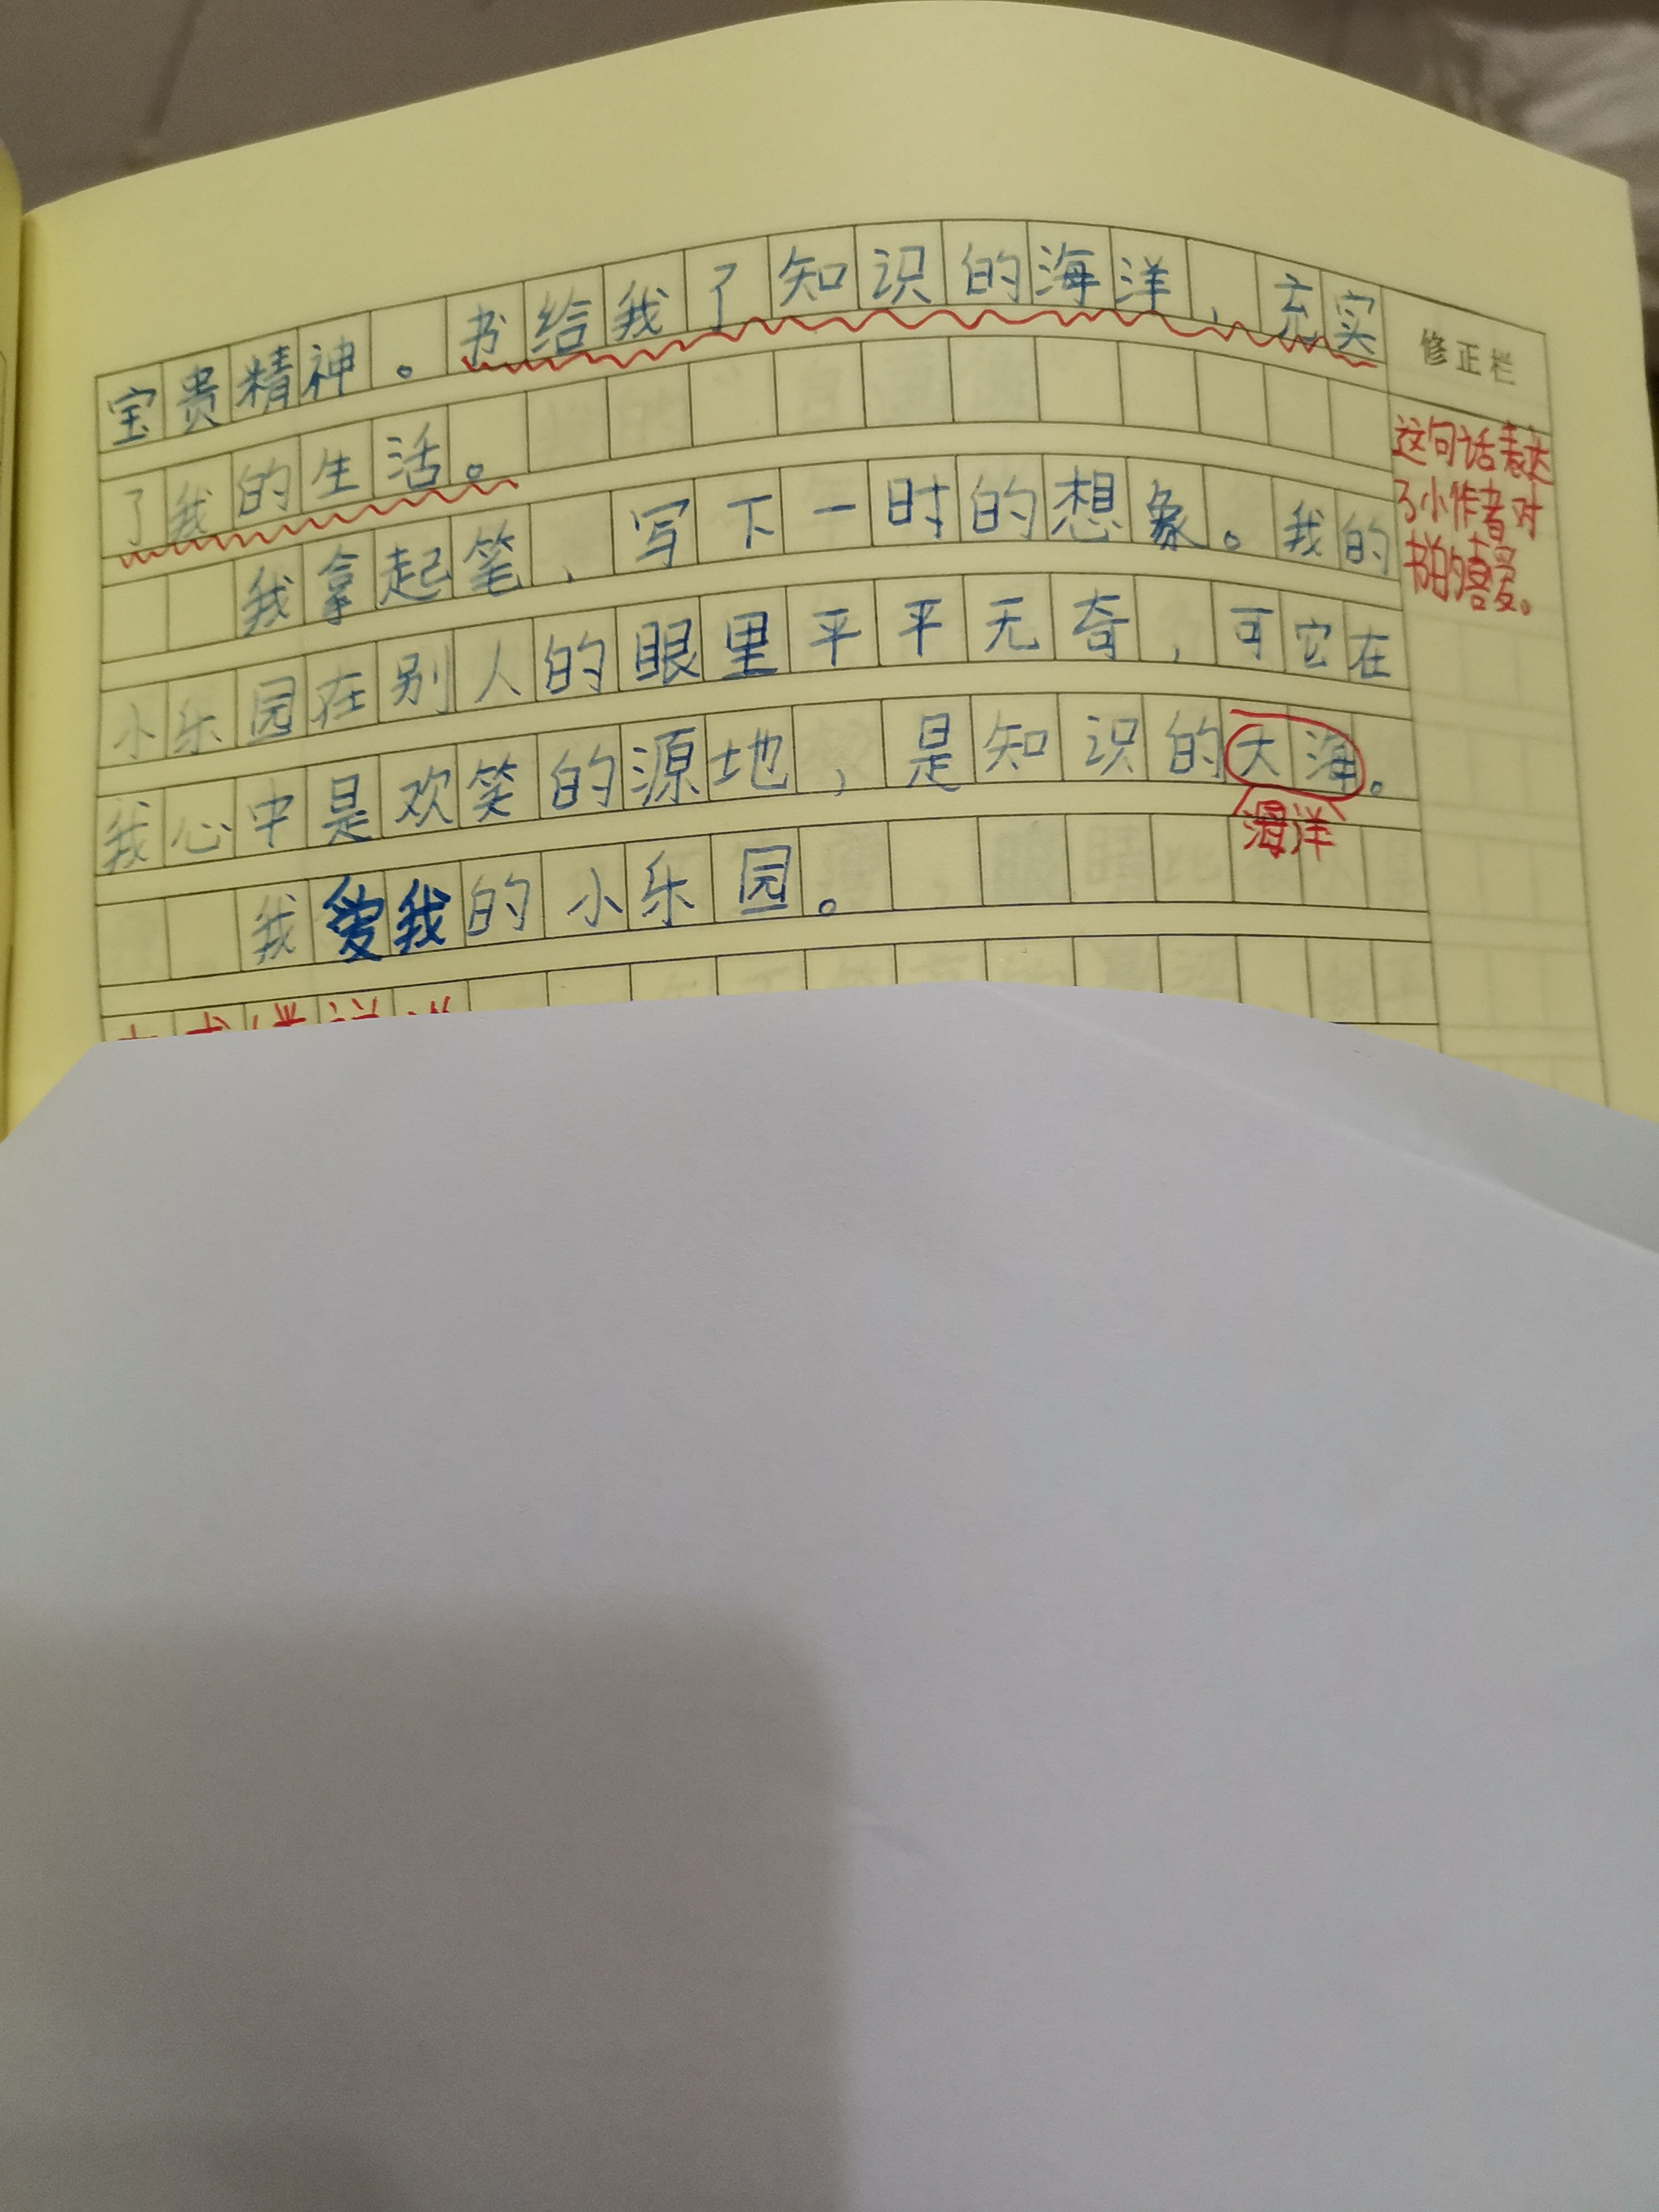 宝贵精神。书给我了知识的海洋，充实
了我的生活。
我拿起笔，写下一时的想象。我的
小乐园在别人的眼里平平无奇，可它在
我心中是欢笑的源地，是知识的大海。
海洋
我爱我的小乐园。
修正栏
这句话表达
了小作者对
书的喜爱。